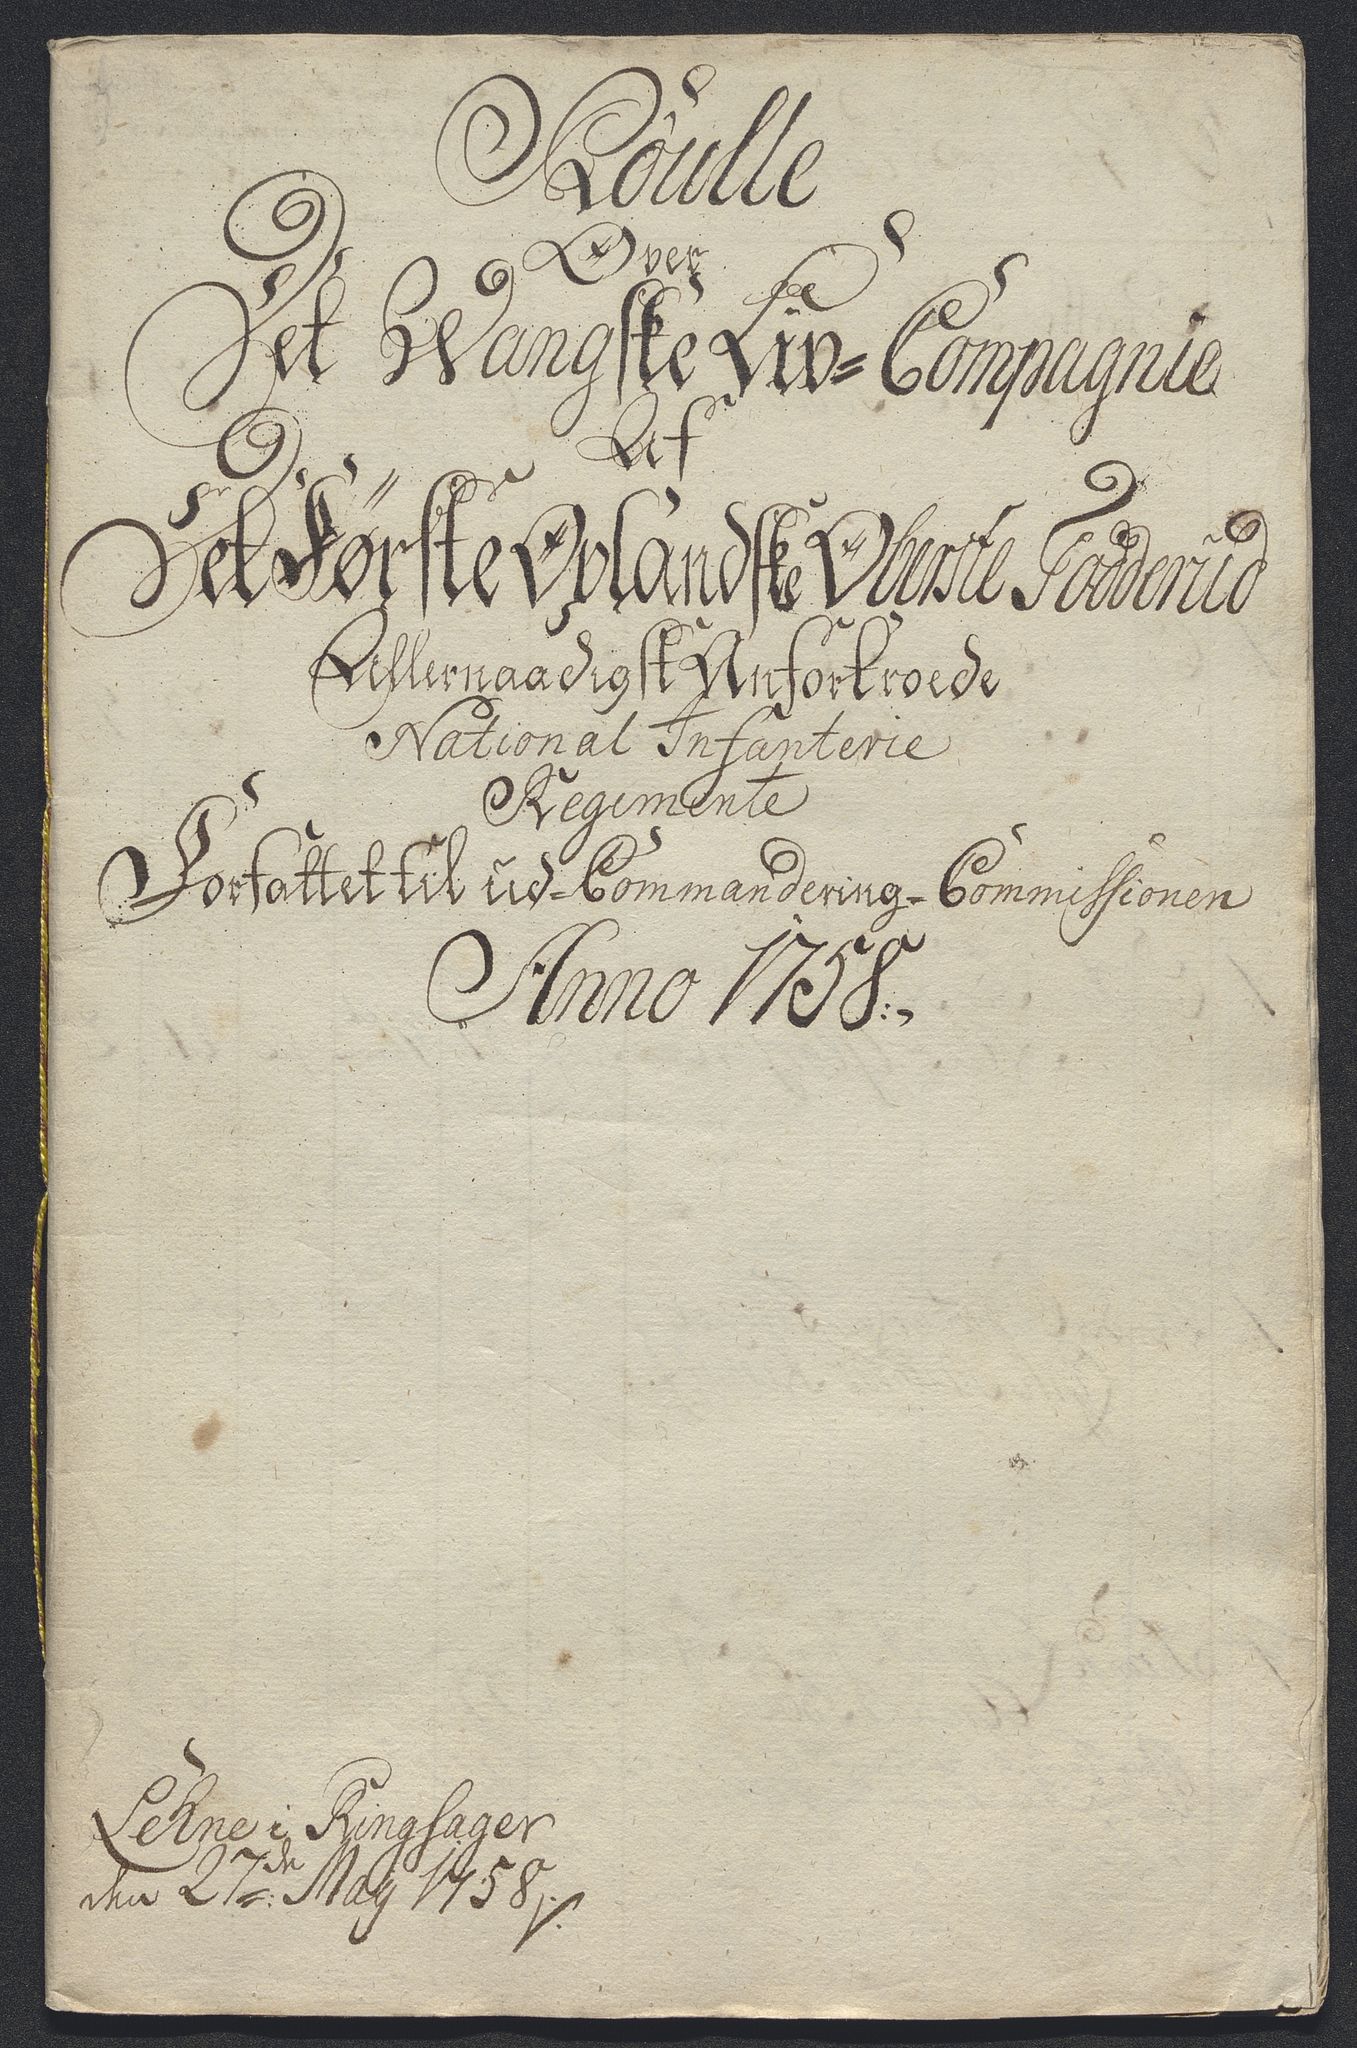 Roulle
Over
Det Wangske Liv=Compagnie
Af
Det Første Oplandske Oberste
Allernaadigst Anfortroede
National Infanterie
Regimente
Forfattet til ud-Commandering-Commissionen
Anno 1758.
Lehne i Ringsager
den 27de May 1758